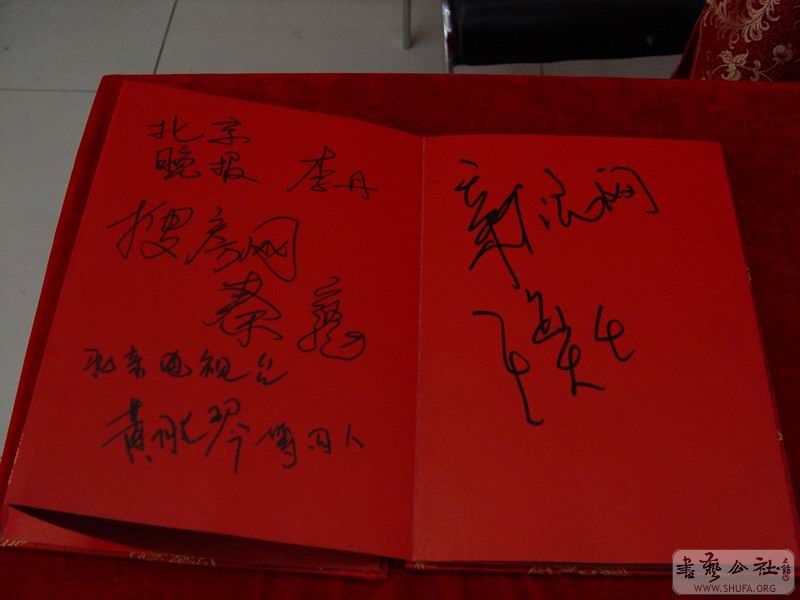 北京
晚报 李丹
搜房网
秦
北京电视台
黄晓琴 同人
新浪网
書藝公社
WWW.SHUFA.ORG